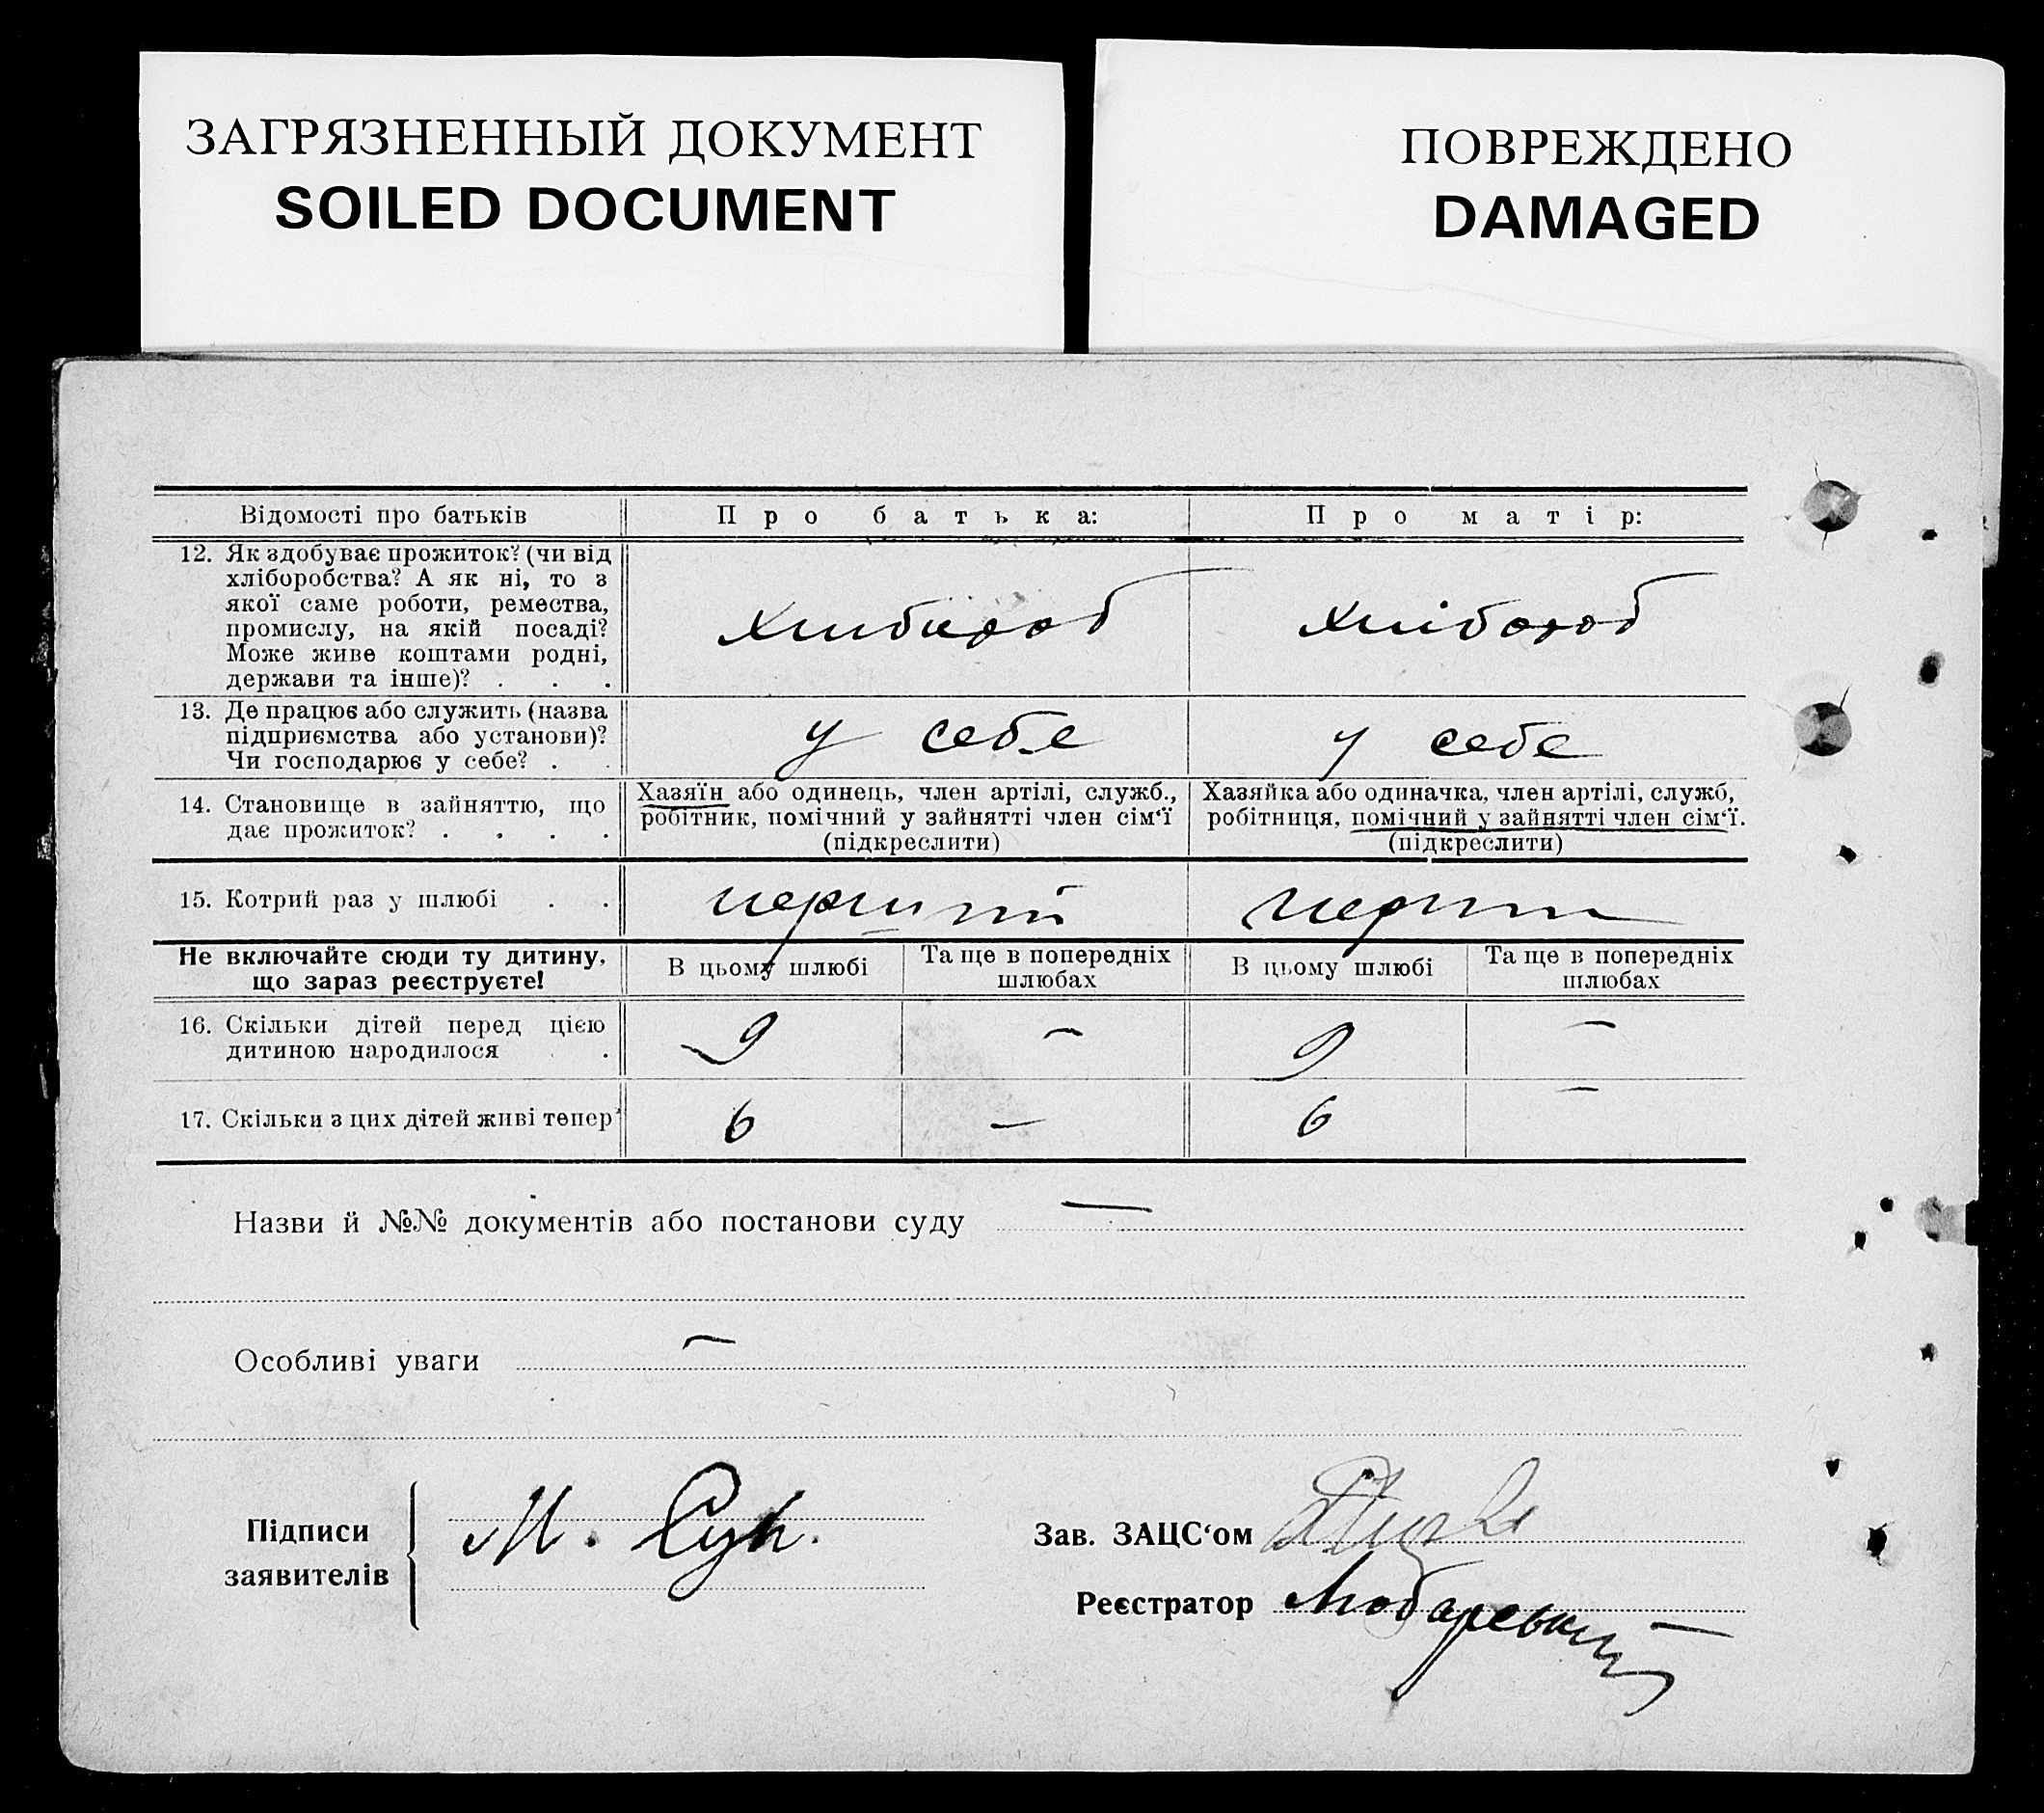 ЗАГРЯЗНЕННЫЙ ДОКУМЕНТ
SOILED DOCUMENT
ПОВРЕЖДЕНО
DAMAGED
Відомості про батьків
Про батька:
Про матір:
12. Як здобуває прожиток? (чи від
хліборобства? А як ні, то з
якої саме роботи, ремества,
промислу, на якій посаді?
Може живе коштами родні,
держави та інше)? . . .
хлибороб
хлібороб
13. Де працює або служить (назва
підприємства або установи)?
Чи господарює у себе? . .
у себе
у себе
14. Становище в зайняттю, що
дає прожиток? . . . .
Хазяїн або одинець, член артілі, служб.,
робітник, помічний у зайнятті член сім‘ї
(підкреслити)
Хазяйка або одиначка, член артілі, служб,
робітниця, помічний у зайнятті член сім‘ї.
(підкреслити)
15. Котрий раз у шлюбі . .
перший
Не включайте сюди ту дитину,
що зараз реєструєте!
В цьому шлюбі
Та ще в попередніх
шлюбах
В цьому шлюбі
Та ще в попередніх
шлюбах
16. Скільки дітей перед цією
дитиною народилося .
9
—
9
—
17. Скільки з цих дітей живі тепер
6
—
6
—
Назви й №№ документів або постанови суду —
Особливі уваги —
Підписи
заявителів
М. Сук.
Зав. ЗАЦС‘ом
Реєстратор Любарський